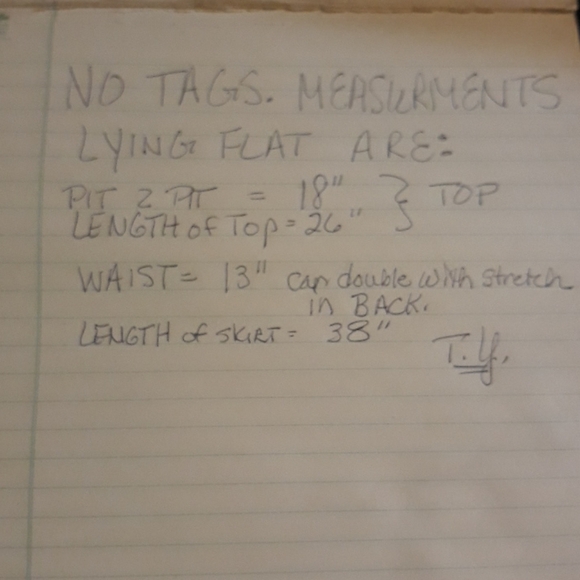 NO TAGS. MEASURMENTS
LYING FLAT ARE:
PIT 2 PIT = 18" } TOP
LENGTH of TOP = 26"
WAIST = 13" can double with stretch
in BACK.
LENGTH of SKIRT = 38"
T.Y.